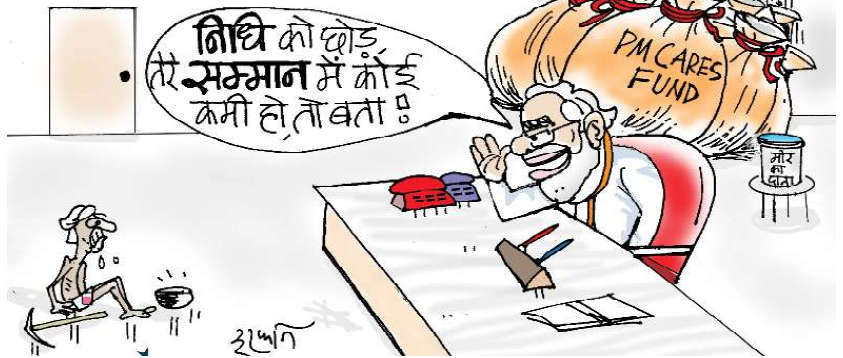 निधि को छोड़,
तेरे सम्मान में कोई
कमी हो, तो बता !
PM CARES
FUND
मोर
का
दाना